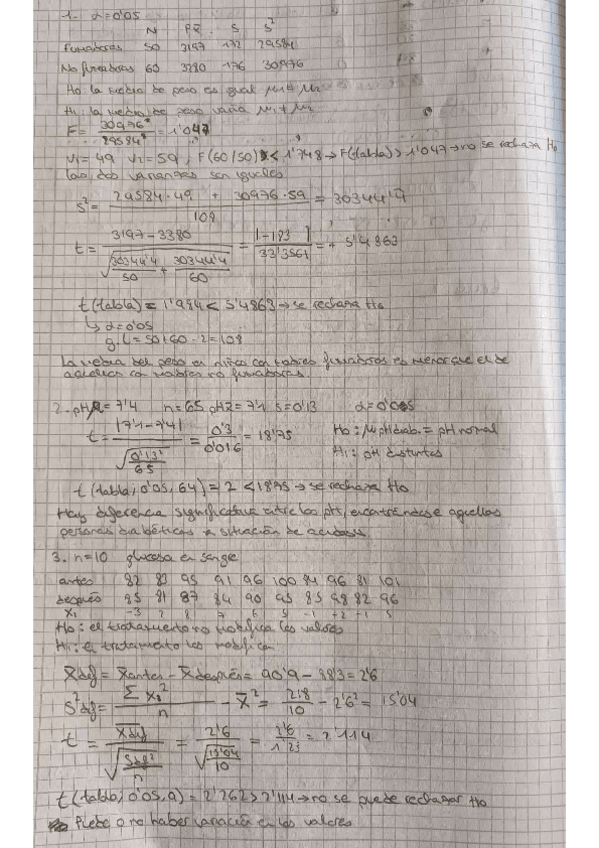 1. α=0'05
N PX̄ S S²
Fumadoras 50 3197 172 29584
No fumadoras 60 3280 176 30976
Ho: la media de peso es igual μ₁=μ₂
H₁: la media de peso varía μ₁≠μ₂
F= 30976²/29584² = 1'047
V₁=49 V₁=59, F(60/50) < 1'748 → F(tabla) > 1'047 → no se rechaza Ho
Las dos varianzas son iguales
S² = (29584·49 + 30976·59)/108 = 30344'4
t = (3197-3380)/√(30344'4/50 + 30344'4/60) = |-183|/33'3561 = + 5'4863
t(tabla) = 1'984 < 5'4863 → se rechaza Ho
↳ α=0'05
g.L = 50+60-2=108
La media del peso en niños con madres fumadoras es menor que el de
aquellos con madres no fumadoras.
2. pH =7'4 n=65 pHX̄=7'1 s=0'13 α=0'05
t = |7'1-7'4|/√(0'13²/65) = 0'3/0'016 = 18'75 Ho: μpHdiab.= pH normal
H₁: pH distintos
t(tabla; 0'05, 64) = 2 < 18'75 → se rechaza Ho
Hay diferencia significativa entre los pH, encontrándose aquellas
personas diabéticas a situación de acidosis
3. n=10 glucosa en sangre
antes 82 83 95 91 96 100 84 96 81 101
después 85 81 87 84 90 95 85 98 82 96
X₁ -3 2 8 7 6 5 -1 -2 -1 5
Ho: el tratamiento no modifica los valores
H₁: el tratamiento los modifica
X̄dif = X̄antes - X̄después = 90'9 - 88'3 = 2'6
S²dif = Σ X₁²/n - X̄² = 218/10 - 2'6² = 15'04
t = X̄dif/√(Sdif²/n) = 2'6/√(15'04/10) = 2'6/1'23 = 2'114
t(tabla; 0'05, 9) = 2'262 > 2'114 → no se puede rechazar Ho
Puede o no haber variación en los valores